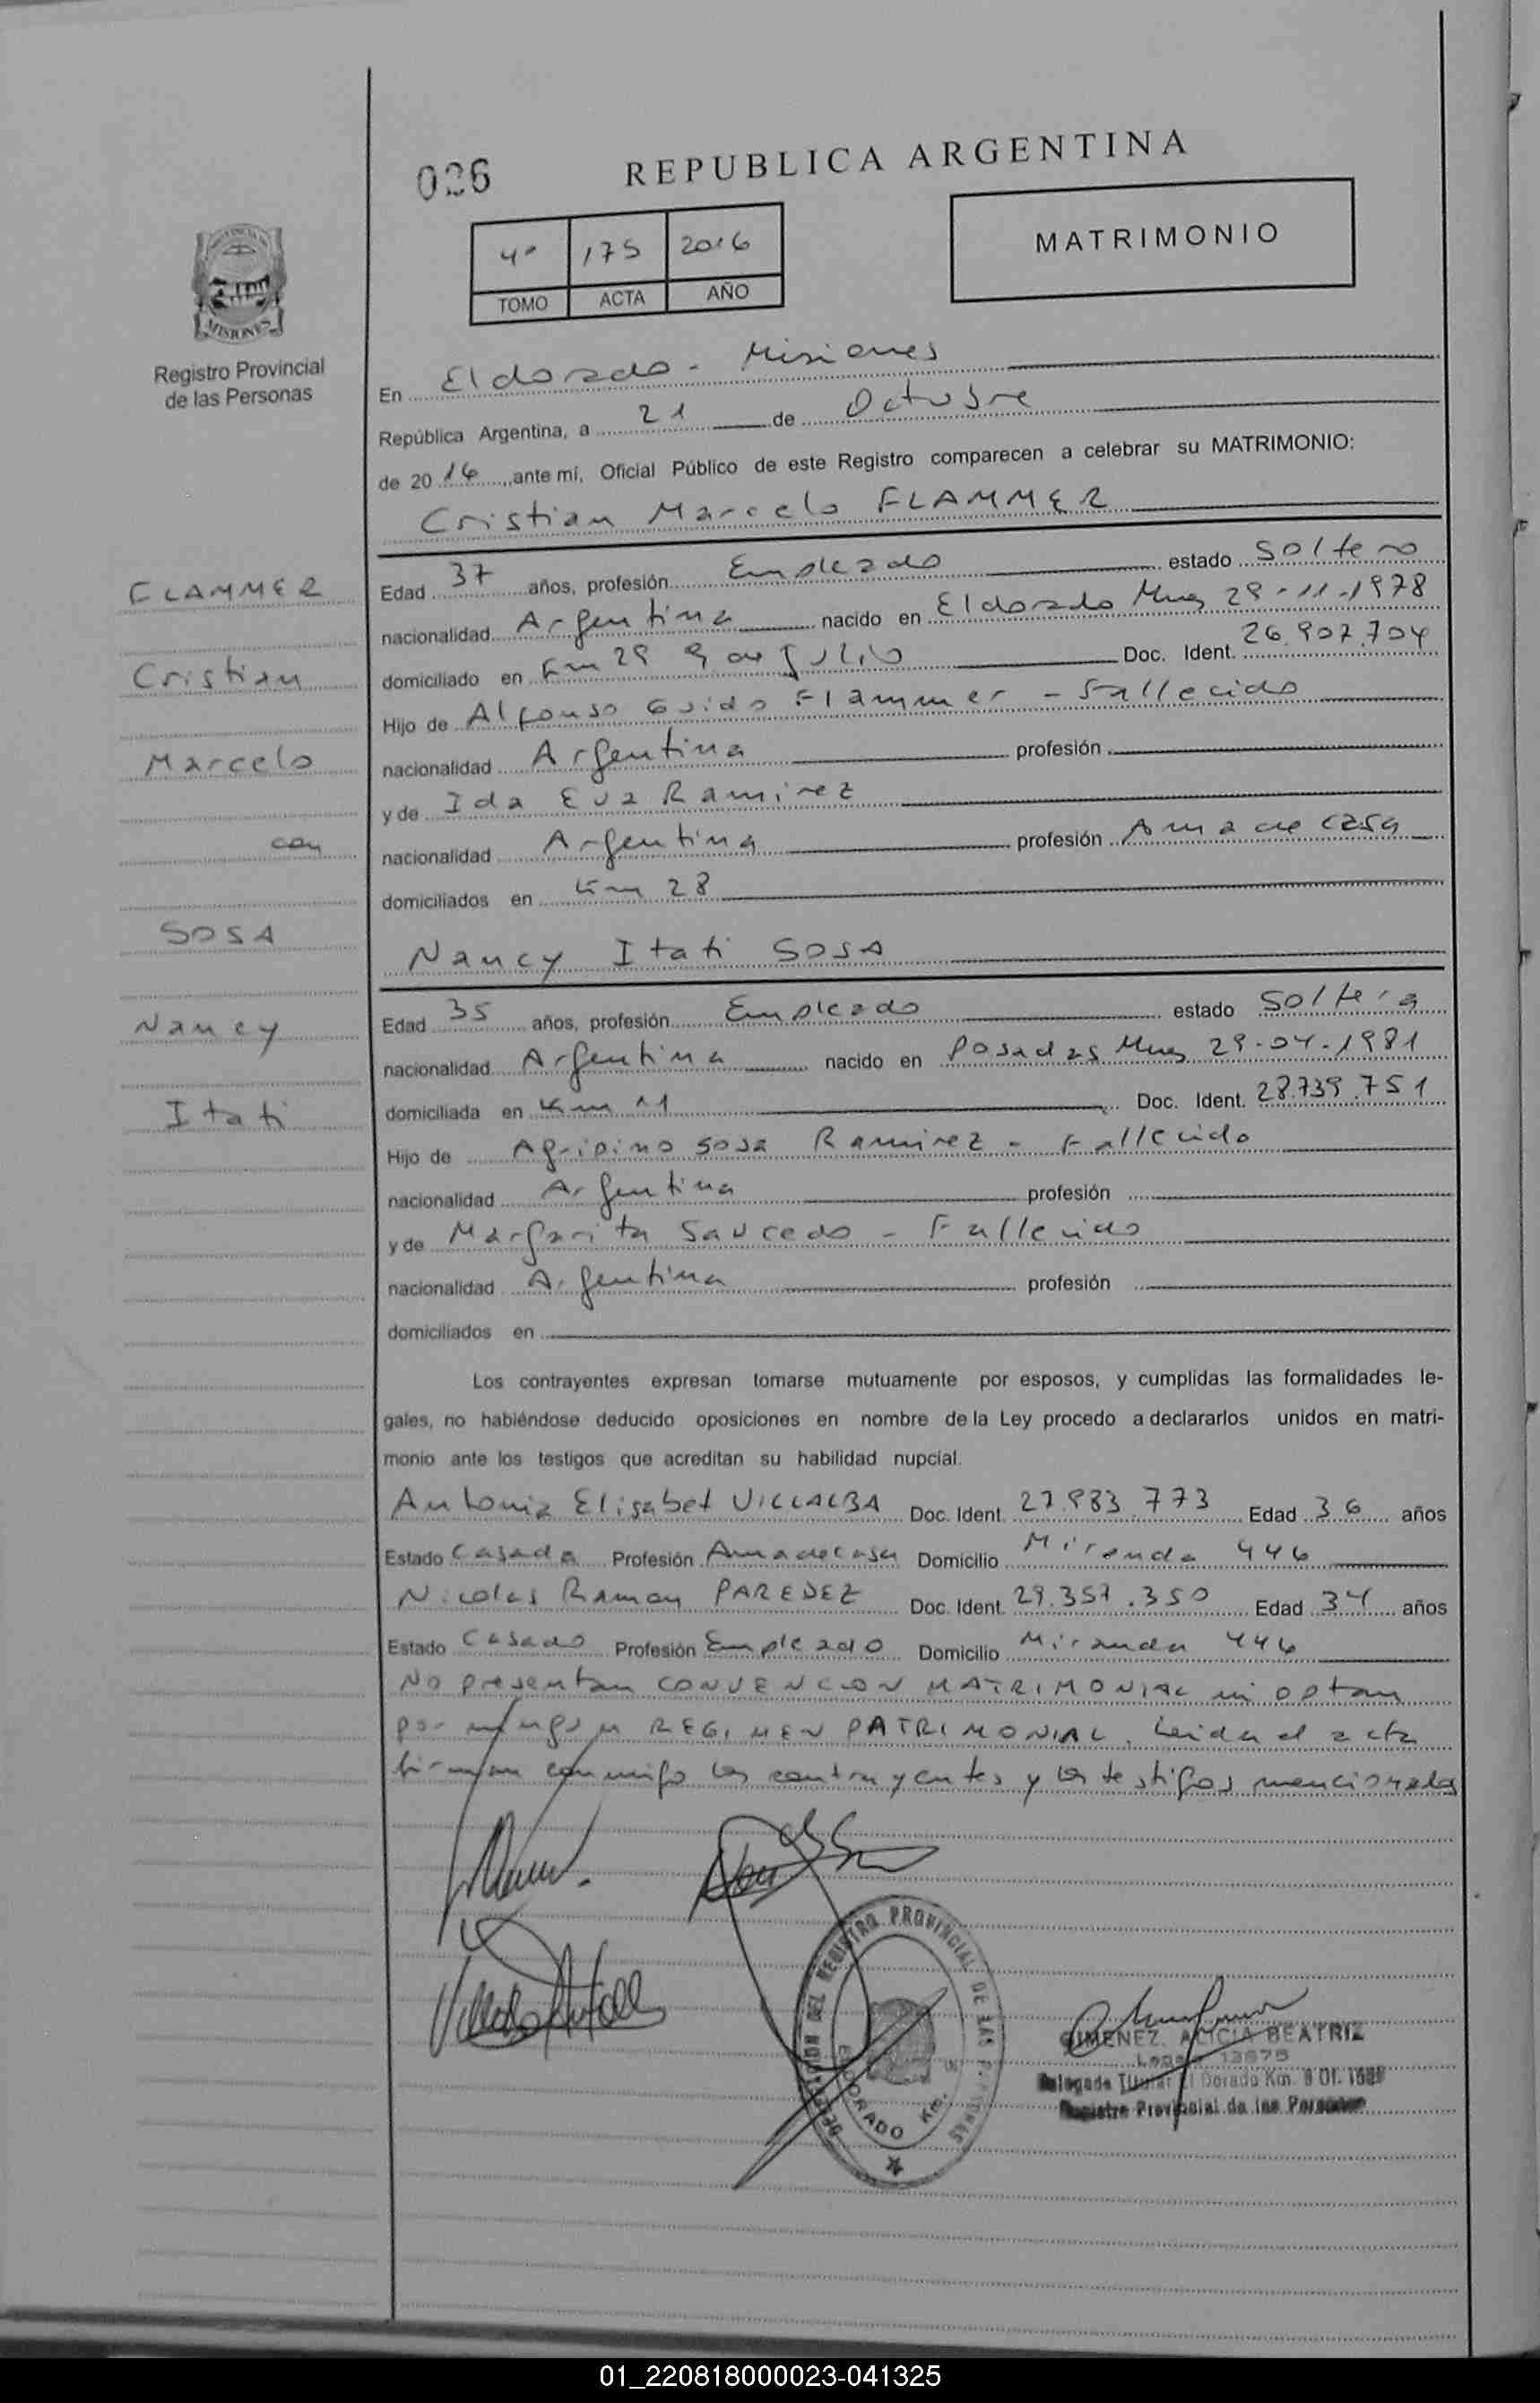 026
REPUBLICA ARGENTINA
4º 175 2016
TOMO ACTA AÑO
MATRIMONIO
MISIONES
Registro Provincial
de las Personas
En Eldorado - Misiones
República Argentina, a 21 de Octubre
de 2016, ante mí, Oficial Público de este Registro comparecen a celebrar su MATRIMONIO:
Cristian Marcelo FLAMMER
Edad 37 años, profesión Empleado estado Soltero
nacionalidad Argentina nacido en Eldorado Mnes 29-11-1978
domiciliado en Km 29 9 de Julio Doc. Ident. 26.907.704
Hijo de Alfonso Guido Flammer - Fallecido
nacionalidad Argentina profesión
y de Ida Eva Ramirez
nacionalidad Argentina profesión Ama de casa
domiciliados en Km 28
Nancy Itati SOSA
Edad 35 años, profesión Empleado estado Soltera
nacionalidad Argentina nacido en Posadas Mnes 29-04-1981
domiciliada en Km 11 Doc. Ident. 28.739.751
Hijo de Agripino Sosa Ramirez - Fallecido
nacionalidad Argentina profesión
y de Margarita Saucedo - Fallecido
nacionalidad Argentina profesión
domiciliados en
FLAMMER
Cristian
Marcelo
con
SOSA
Nancy
Itati
Los contrayentes expresan tomarse mutuamente por esposos, y cumplidas las formalidades le-
gales, no habiéndose deducido oposiciones en nombre de la Ley procedo a declararlos unidos en matri-
monio ante los testigos que acreditan su habilidad nupcial.
Antonia Elisabet VILLALBA Doc. Ident. 27.983.773 Edad 36 años
Estado Casada Profesión Ama de casa Domicilio Miranda 446
Nicolas Ramon PAREDEZ Doc. Ident. 29.357.350 Edad 34 años
Estado Casado Profesión Empleado Domicilio Miranda 446
No presentan CONVENCION MATRIMONIAL ni optan
por ningun REGIMEN PATRIMONIAL. Leida el acta
firman conmigo los contrayentes y los testigos mencionados
DEL REGISTRO PROVINCIAL DE LAS
ELDORADO Km.
GIMENEZ, ALICIA BEATRIZ
Legajo 13875
Delegada Titular El Dorado Km. 9 Of.
Registro Provincial de las Personas
01_220818000023-041325